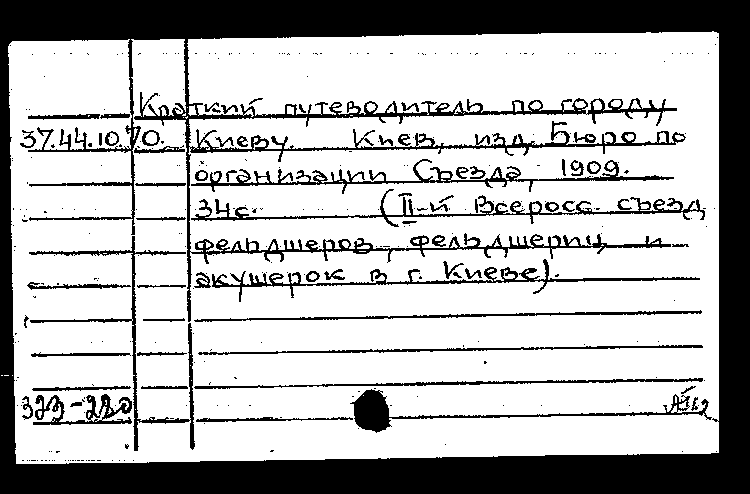 Краткий путеводитель по городу
37.44.10.70. Киеву. Киев, изд. Бюро по
организации Съезда, 1909.
34с. (II-й Всеросс. съезд
фельдшеров, фельдшериц и
акушерок в г. Киеве).
323-280